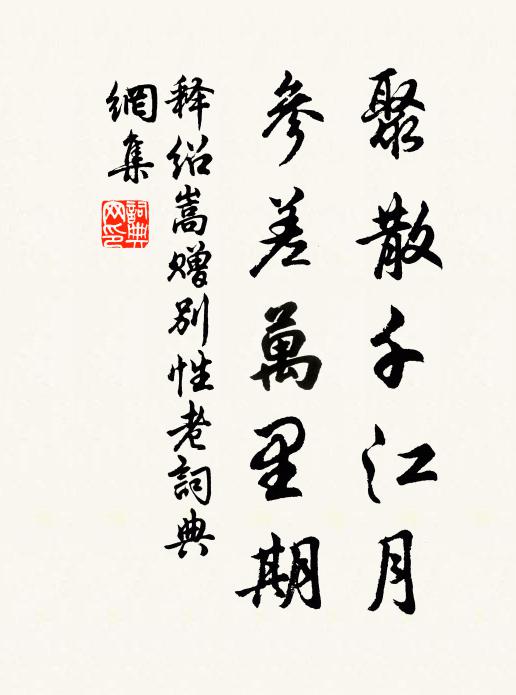 聚散千江月
參差萬里期
释绍嵩贈別性老詞典
網集
詞典
网印